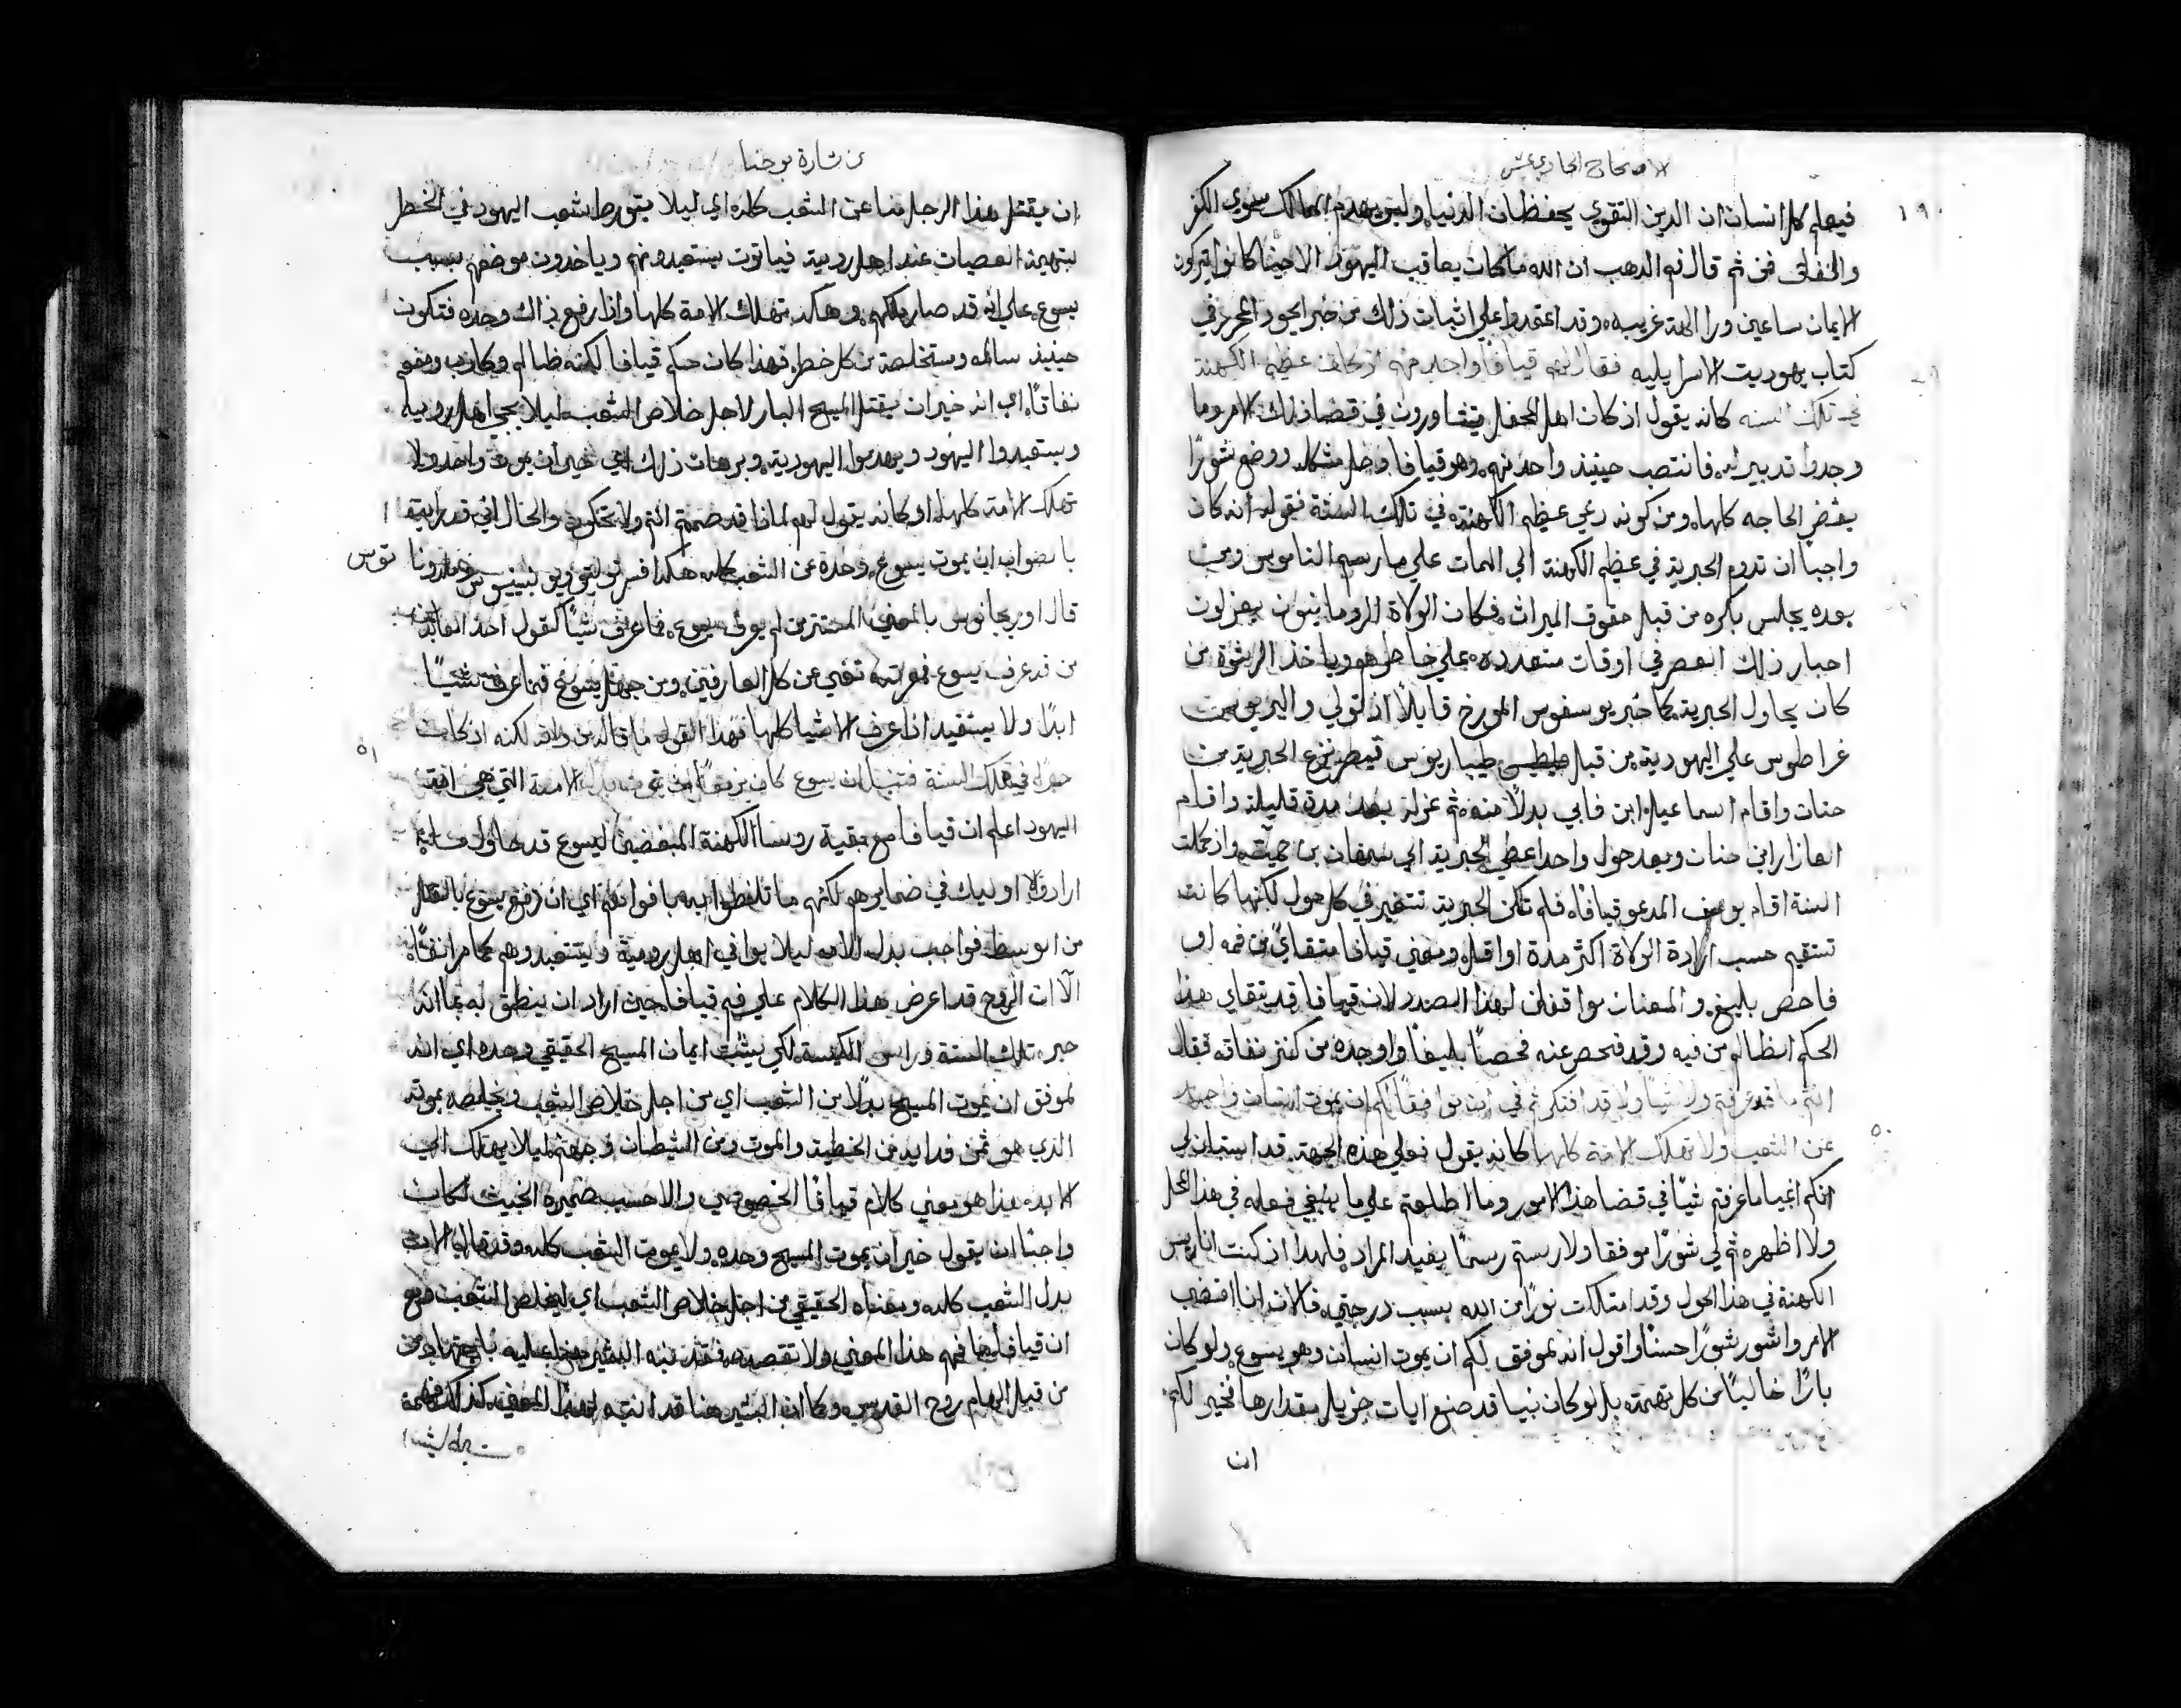 الاصحاح الحادي عشر
١٩٠
فيعلم كل انسان ان الدين التقوي يحفظان الدنيا وليس يهدم الممالك سوي الكفر
والنفاق فمن ثم قال فم الدهب ان الله ما كان يعاقب اليهود الا حينما كانوا يتركون
الايمان ساعين ورا الهة غريبه وقد اعتمدوا علي اثبات ذلك من خبر احيور المحرر في
كتاب يهوديت الاسرايليه فقال لهم قيافا واحد منهم اذ كان عظيم الكهنة
في تلك السنه كانه يقول اذ كان اهل المحفل يتشاورون في قضا ذلك الامر وما
وجدوا تدبير له فانتصب حينيذ واحد منهم وهو قيافا وحل مشكله ووضع شورًا
يقضي الحاجه كلها ومن كونه دعي عظيم الكهنة في تلك السنة نقول انه كان
واجبًا ان تدوم الحبرية في عظيم الكهنة الي الممات علي ما رسم الناموس ومن
بعده يجلس بكره من قبل حقوق الميراث فكان الولاة الرومانيون يعزلون
احبار ذلك العصر في اوقات متعدده علي خاطرهم وياخذ الرشوة من
كان يحاول الحبرية كما خبر يوسفوس المورخ قايلاً اذ تولي واليريوس
غراطوس علي اليهودية من قبل طيباريوس قيصر نزع الحبرية من
حنان واقام اسماعيل ابن فابي بدلاً منه ثم عزله بعد مدة قليلة واقام
العازار ابن حنان وبعد حول واحد اعطي الحبرية الي سمعان بن واذ كملت
السنة اقام يوسف المدعو قيافا فلم تكن الحبرية تتغير في كل حول لكنها كانت
تستقيم حسب ارادة الولاة اكثر مدة او اقل ومعني قيافا متقايًا من فمه او
فاحص بليغ والمعنان موافقان لهذا الصدد لان قيافا قد تقاي هذا
الحكم الظالم من فيه وقد فحص عنه فحصًا بليغًا واوجده من كنز نفاقه فقال
انتم ما قد عرفتم ولا شيًا ولا قد افتكرتم في انه موافقًا لكم ان يموت انسان واحد
٥٠
عن الشعب ولا تهلك الامة كلها كانه يقول فعلي هذه الجهة قد استبان لي
انكم اغبيا ما عرفتم شيًا في قضا هذا الامور وما اطلعتم علي ما ينبغي فعله في هذا المحل
ولا اظهرتم لي شورًا موفقا ولا رسمتم رسمًا يفيد المراد فلهذا اذ كنت انا ريس
الكهنة في هذا الحول وقد امتلكت نورًا من الله بسبب درجتي فالان انا اقضب
الامر واشور شورًا حسنًا واقول انه لموفق لكم ان يموت انسان وهو يسوع ولو كان
بارًا خاليًا من كل تهمة بل لو كان نبيا قد صنع ايات جزيل مقدارها فخير لكم
ان
من بشارة يوحنا
ان يقتل هذا الرجل منا عن الشعب كله اي ليلا يتورط شعب اليهود في الخطر
بتهمة العصيان عند اهل رومية فياتون يستعبدونهم وياخدون موضعهم بسبب
يسوع علي انه قد صار ملكهم وهكذا تهلك الامة كلها واذا رفع ذاك وحده فتكون
حينيذ سالمه ومستخلصة من كل خطر فهذا كان حكم قيافا لكنه ظالم وكاذب ومفعم
نفاقًا اي انه خير ان يقتل المسيح البار لاجل خلاص الشعب ليلا يجي اهل رومية
ويستعبدوا اليهود ويهدموا اليهودية وبرهان ذلك هي خير ان يموت واحد ولا
تهلك الامة كلها او كانه يقول لهم لماذا قد صمتم انتم ولا تحكمون والحال
بالصواب ان يموت يسوع وحده عن الشعب كله هكذا فسر
قال اوريجانوس بالمعني
من قد عرف يسوع فمعرفته تغني عن كل العارفين ومن جهل يسوع فما عرف شيًا
ابدًا ولا يستفيد اذا عرف الاشيا كلها فهذا القول ما قاله من ذاته لكنه اذ كان
٥١
حبرًا في تلك السنة فتنبا ان يسوع كان مزمعًا ان يموت بدل الامة التي هي امة
اليهود اعلم ان قيافا مع بقية روسا الكهنة المبغضين ليسوع قد حاول
اراد اوليك في ضمايرهم لكنهم ما تلفظوا به بافواههم اي ان رفع يسوع بالقتل
من الوسط فواجب بدل الامه ليلا يوافي اهل رومية ويستعبدوهم كما مر انفًا
الا ان الروح قد اعرض هذا الكلام علي فم قيافا حين اراد ان ينطق به بما انه
حبر تلك السنة وراس الكنيسة لكي يثبت ايمان المسيح الحقيقي وحده اي انه
لموفق ان يموت المسيح بدلاً من الشعب اي من اجل خلاص الشعب ويخلصه بموته
الذي هو ثمن فدايه من الخطية والموت ومن الشيطان وجهنم ليلا يهلك الي
الابد هذا هو معني كلام قيافا الخصوصي والا حسب ضميره الخبيث لكان
واجبًا ان يقول خير ان يموت المسيح وحده ولا يموت الشعب كله وقد قال الان
بدل الشعب كله ومعناه الحقيقي من اجل خلاص الشعب اي ليخلص الشعب فمع
ان قيافا ما فهم هذا المعني ولا تقصده فقد تنبه البشير
من قبل الهام روح القدس وكما ان البشير هنا قد انتبه لهذا المعني كذلك